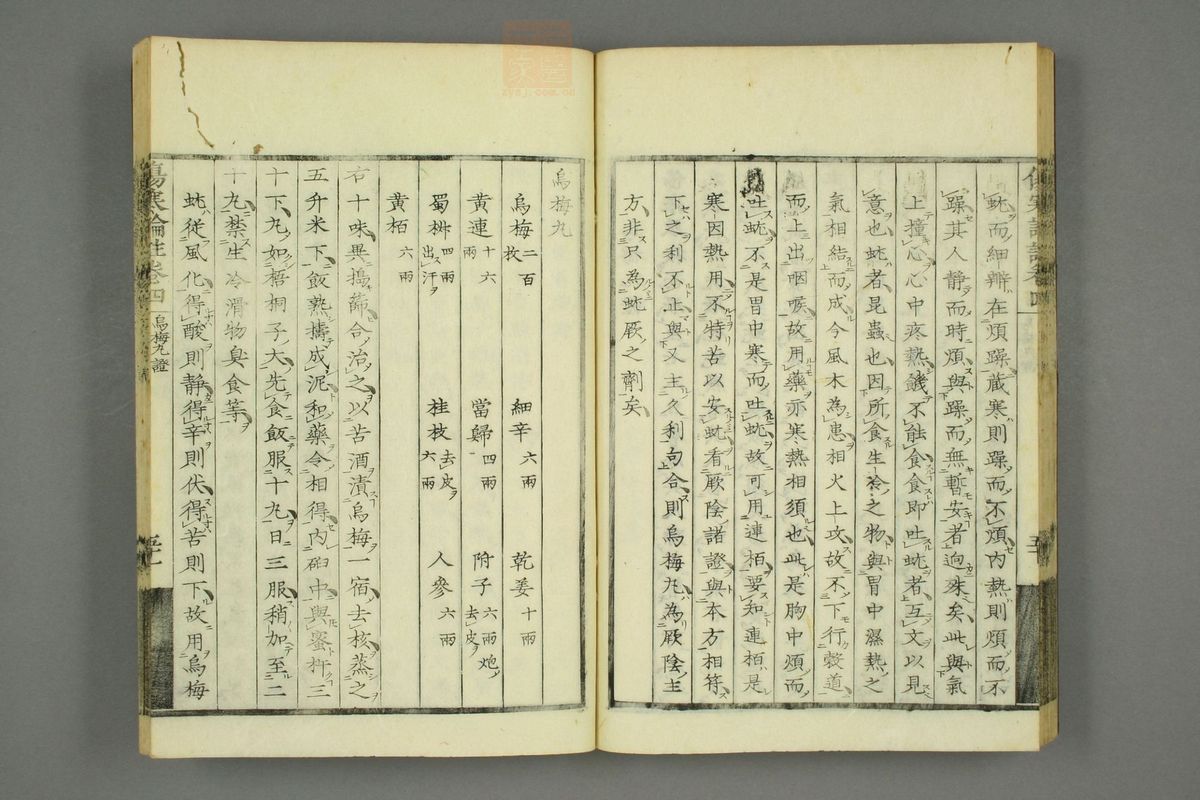 蚘而細辨在煩躁藏寒則躁而不煩內熱則煩而不
躁其人靜而時煩與躁而無暫安者逈殊矣此與氣
上撞心心中疼熱饑不能食食即吐蚘者互文以見
意也蚘者昆蟲也因所食生冷之物與胃中濕熱之
氣相結而成今風木為患相火上攻故不下行穀道
而上出咽喉故用藥亦寒熱相須也此是胸中煩而
吐蚘不是胃中寒而吐蚘故可用連栢要知連栢是
寒因熱用不特苦以安蚘看厥陰諸證與本方相符
下之利不止與又主久利句合則烏梅丸為厥陰主
方非只為蚘厥之劑矣
烏梅丸
烏梅二百枚 細辛六兩 乾姜十兩
黃連十六兩 當歸四兩 附子六兩炮去皮
蜀椒四兩出汗 桂枝去皮六兩 人參六兩
黃栢六兩
右十味異搗篩合治之以苦酒漬烏梅一宿去核蒸之
五升米下飯熟擣成泥和藥令相得內臼中與蜜杵三
十下丸如梧桐子大先食飯服十丸日三服稍加至二
十丸禁生冷滑物臭食等
蚘從風化得酸則靜得辛則伏得苦則下故用烏梅
傷寒論註卷四 烏梅丸證